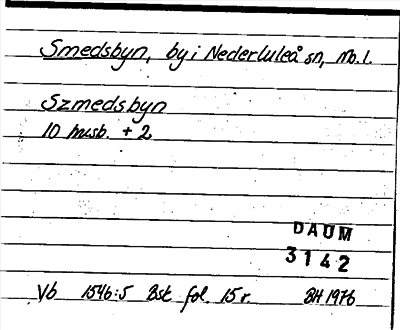 Smedsbyn, by i Nederluleå sn, Nb. l.
Szmedsbyn
10 husb. + 2
DAUM
3142
Vb 1546:5 Bsk fol. 15 r. BH 1976